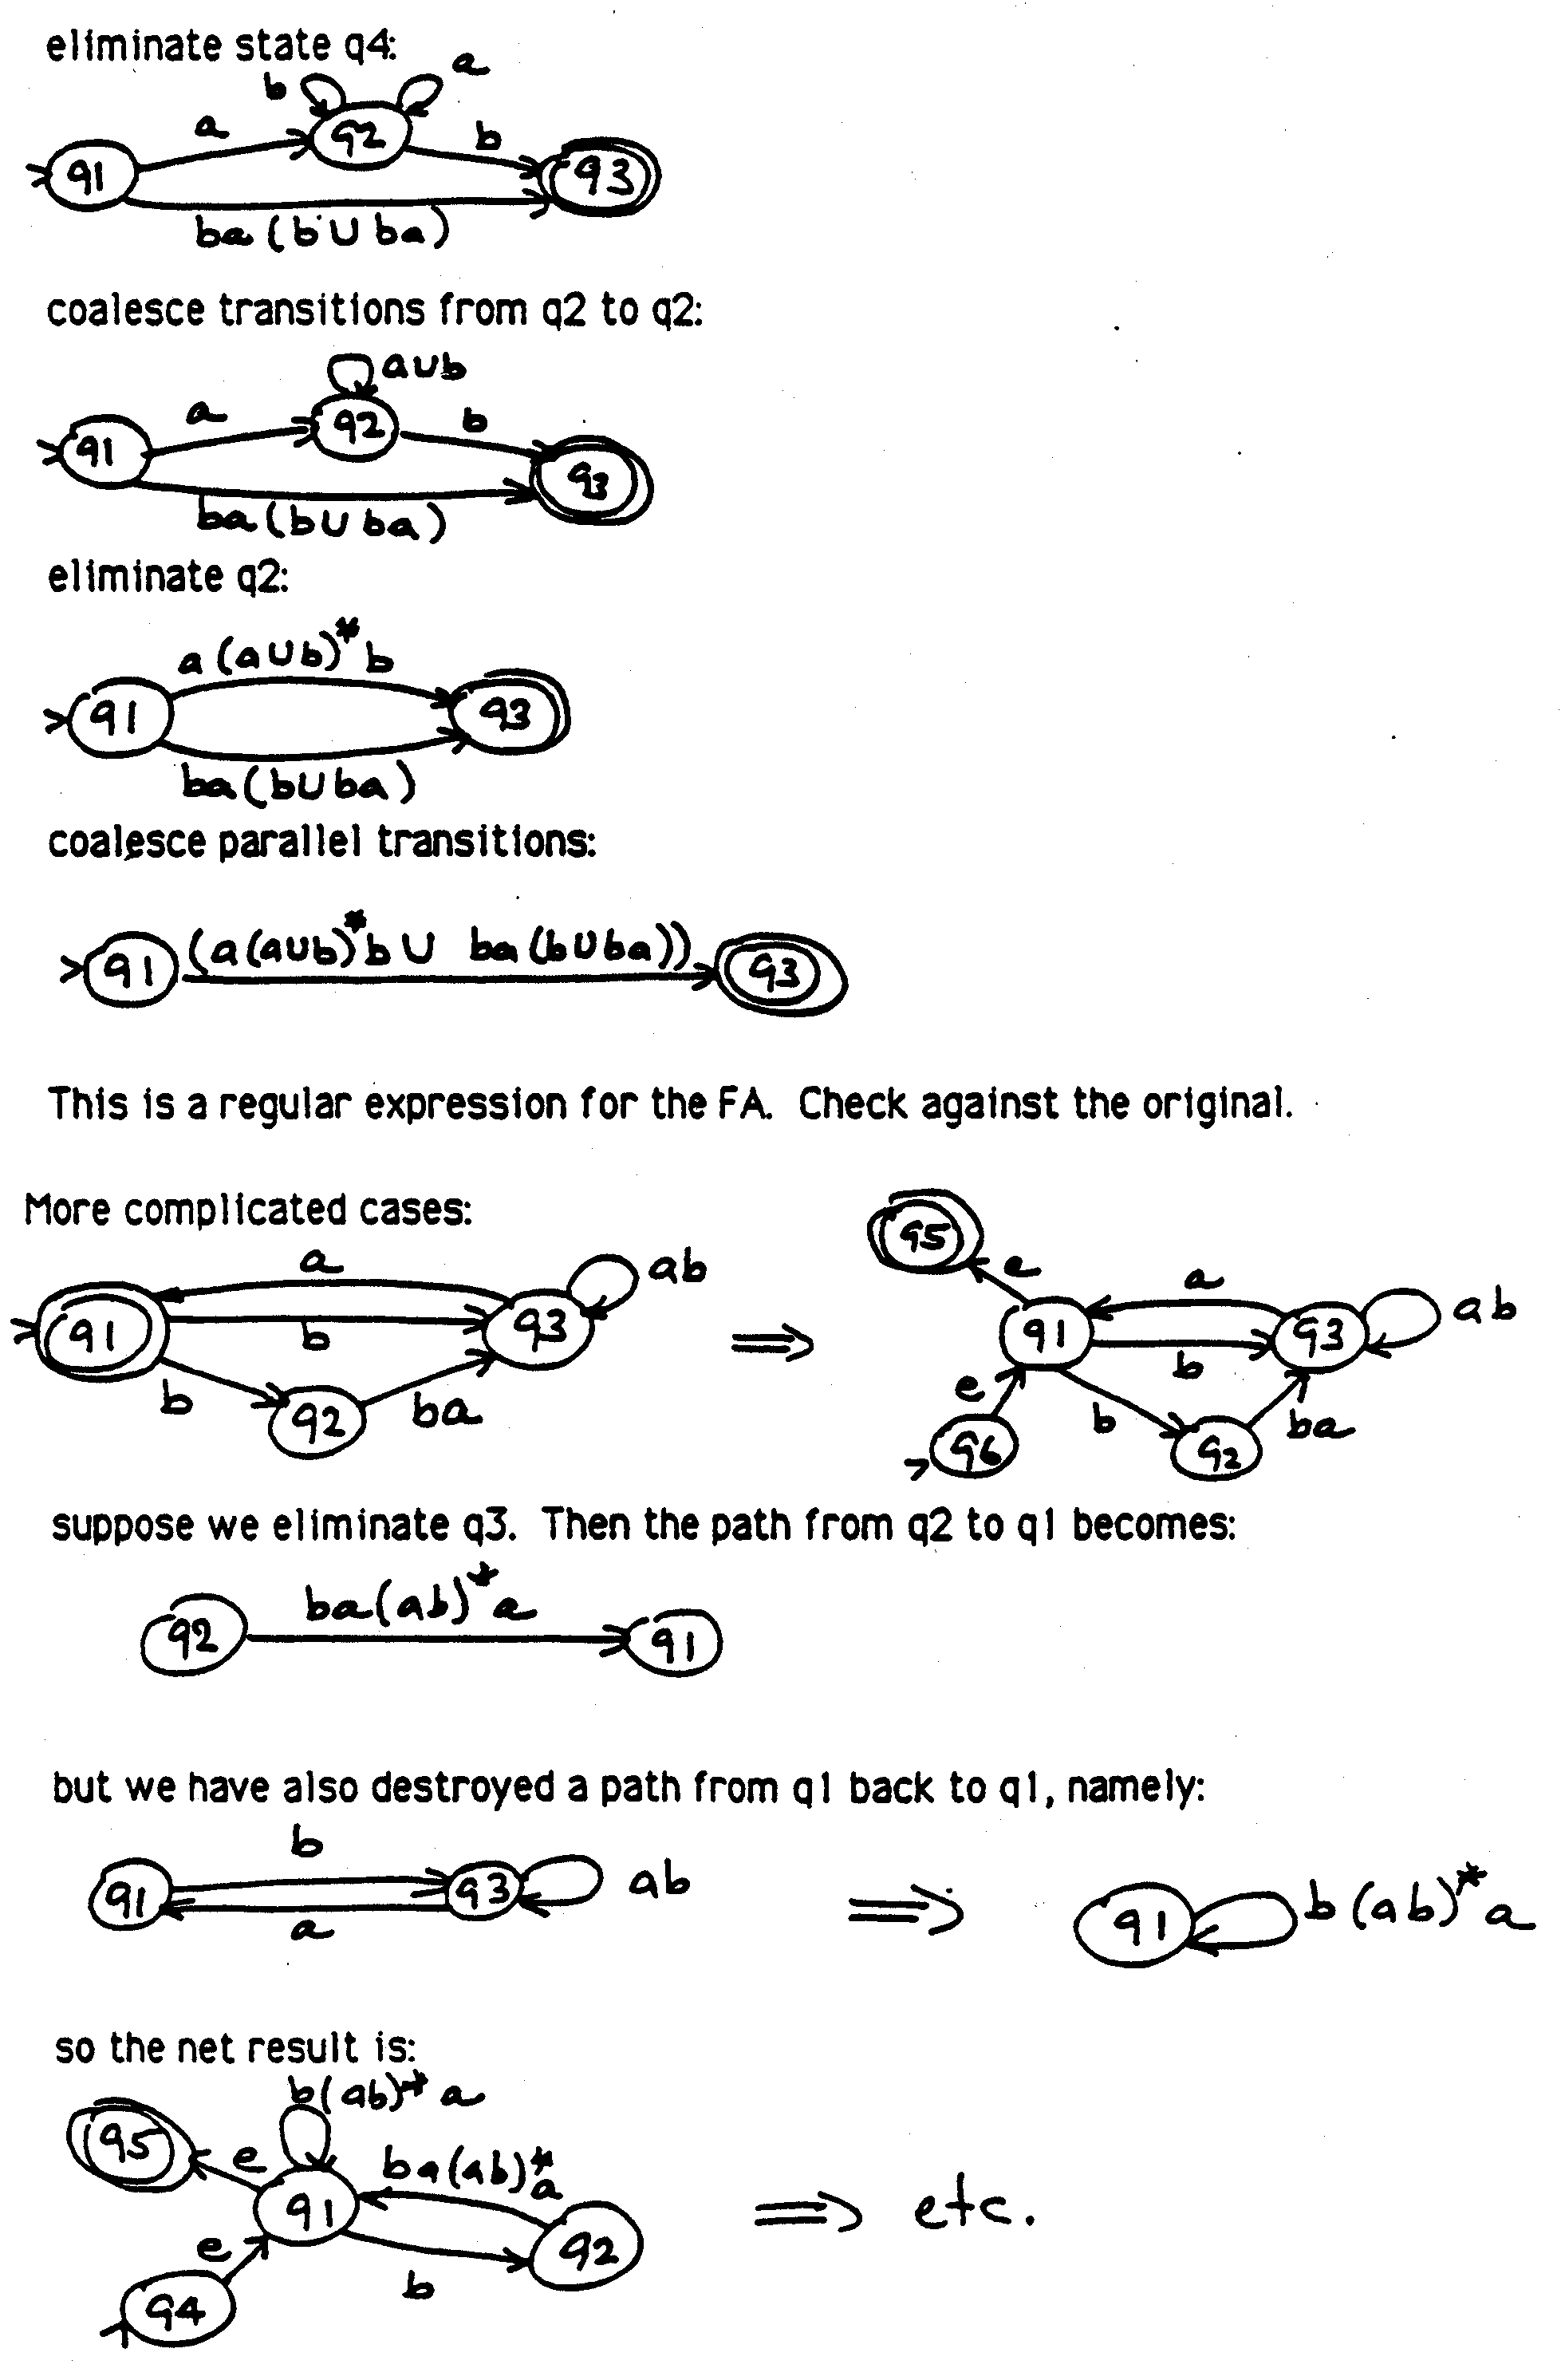 eliminate state q4:
b a
a q2 b
q1 q3
ba(b∪ba)
coalesce transitions from q2 to q2:
a∪b
a q2 b
q1 q3
ba(b∪ba)
eliminate q2:
a(a∪b)*b
q1 q3
ba(b∪ba)
coalesce parallel transitions:
q1 (a(a∪b)*b∪ ba(b∪ba)) q3
This is a regular expression for the FA. Check against the original.
More complicated cases:
a ab
q1 b q3 ⇒
b q2 ba
q5 e
a ab
q1 b q3
e b ba
q6 q2
suppose we eliminate q3. Then the path from q2 to q1 becomes:
ba(ab)*a
q2 q1
but we have also destroyed a path from q1 back to q1, namely:
b
q1 q3 ab ⇒ q1 b(ab)*a
a
so the net result is:
b(ab)*a
q5 e ba(ab)*a
q1 ⇒ etc.
e q2
q4 b